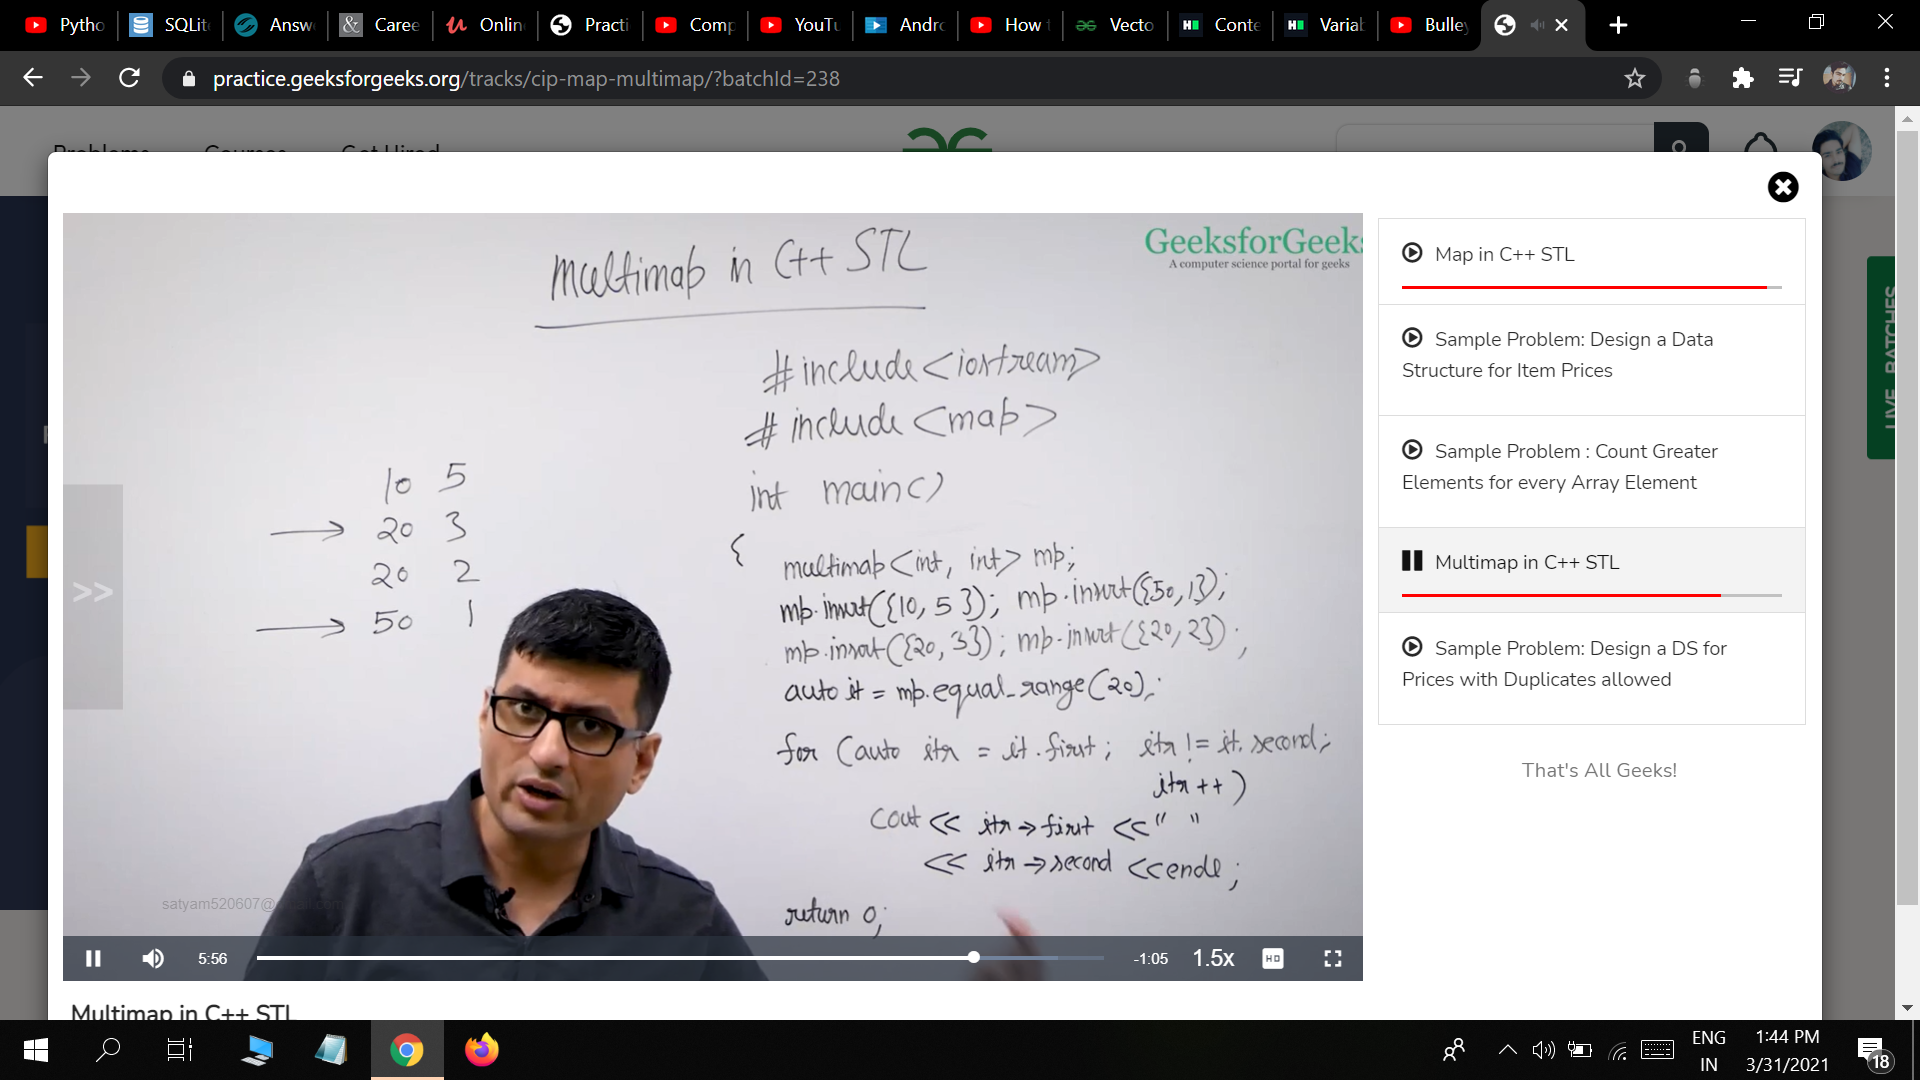 Pytho
SQLite
Answ
Caree
Online
Practi
Comp
YouTu
Andro
How t
Vecto
Conte
Variab
Bulle
practice.geeksforgeeks.org/tracks/cip-map-multimap/?batchId=238
Problems Courses Get Hired
LIVE BATCHES
Multimap in C++ STL
GeeksforGeeks
A computer science portal for geeks
#include<iostream>
#include<map>
int main()
{
10 5
20 3
20 2
50 1
>>
multimap<int, int> mp;
mp.insert({10, 5}); mp.insert({50,1});
mp.insert({20, 3}); mp.insert({20, 2});
auto it = mp.equal_range(20);
for (auto itr = it.first; itr != it.second;
itr++)
cout << itr->first << " "
<< itr->second << endl;
return 0;
5:56
-1:05
1.5x
HD
Multimap in C++ STL
Map in C++ STL
Sample Problem: Design a Data
Structure for Item Prices
Sample Problem : Count Greater
Elements for every Array Element
Multimap in C++ STL
Sample Problem: Design a DS for
Prices with Duplicates allowed
That's All Geeks!
ENG
IN
1:44 PM
3/31/2021
18